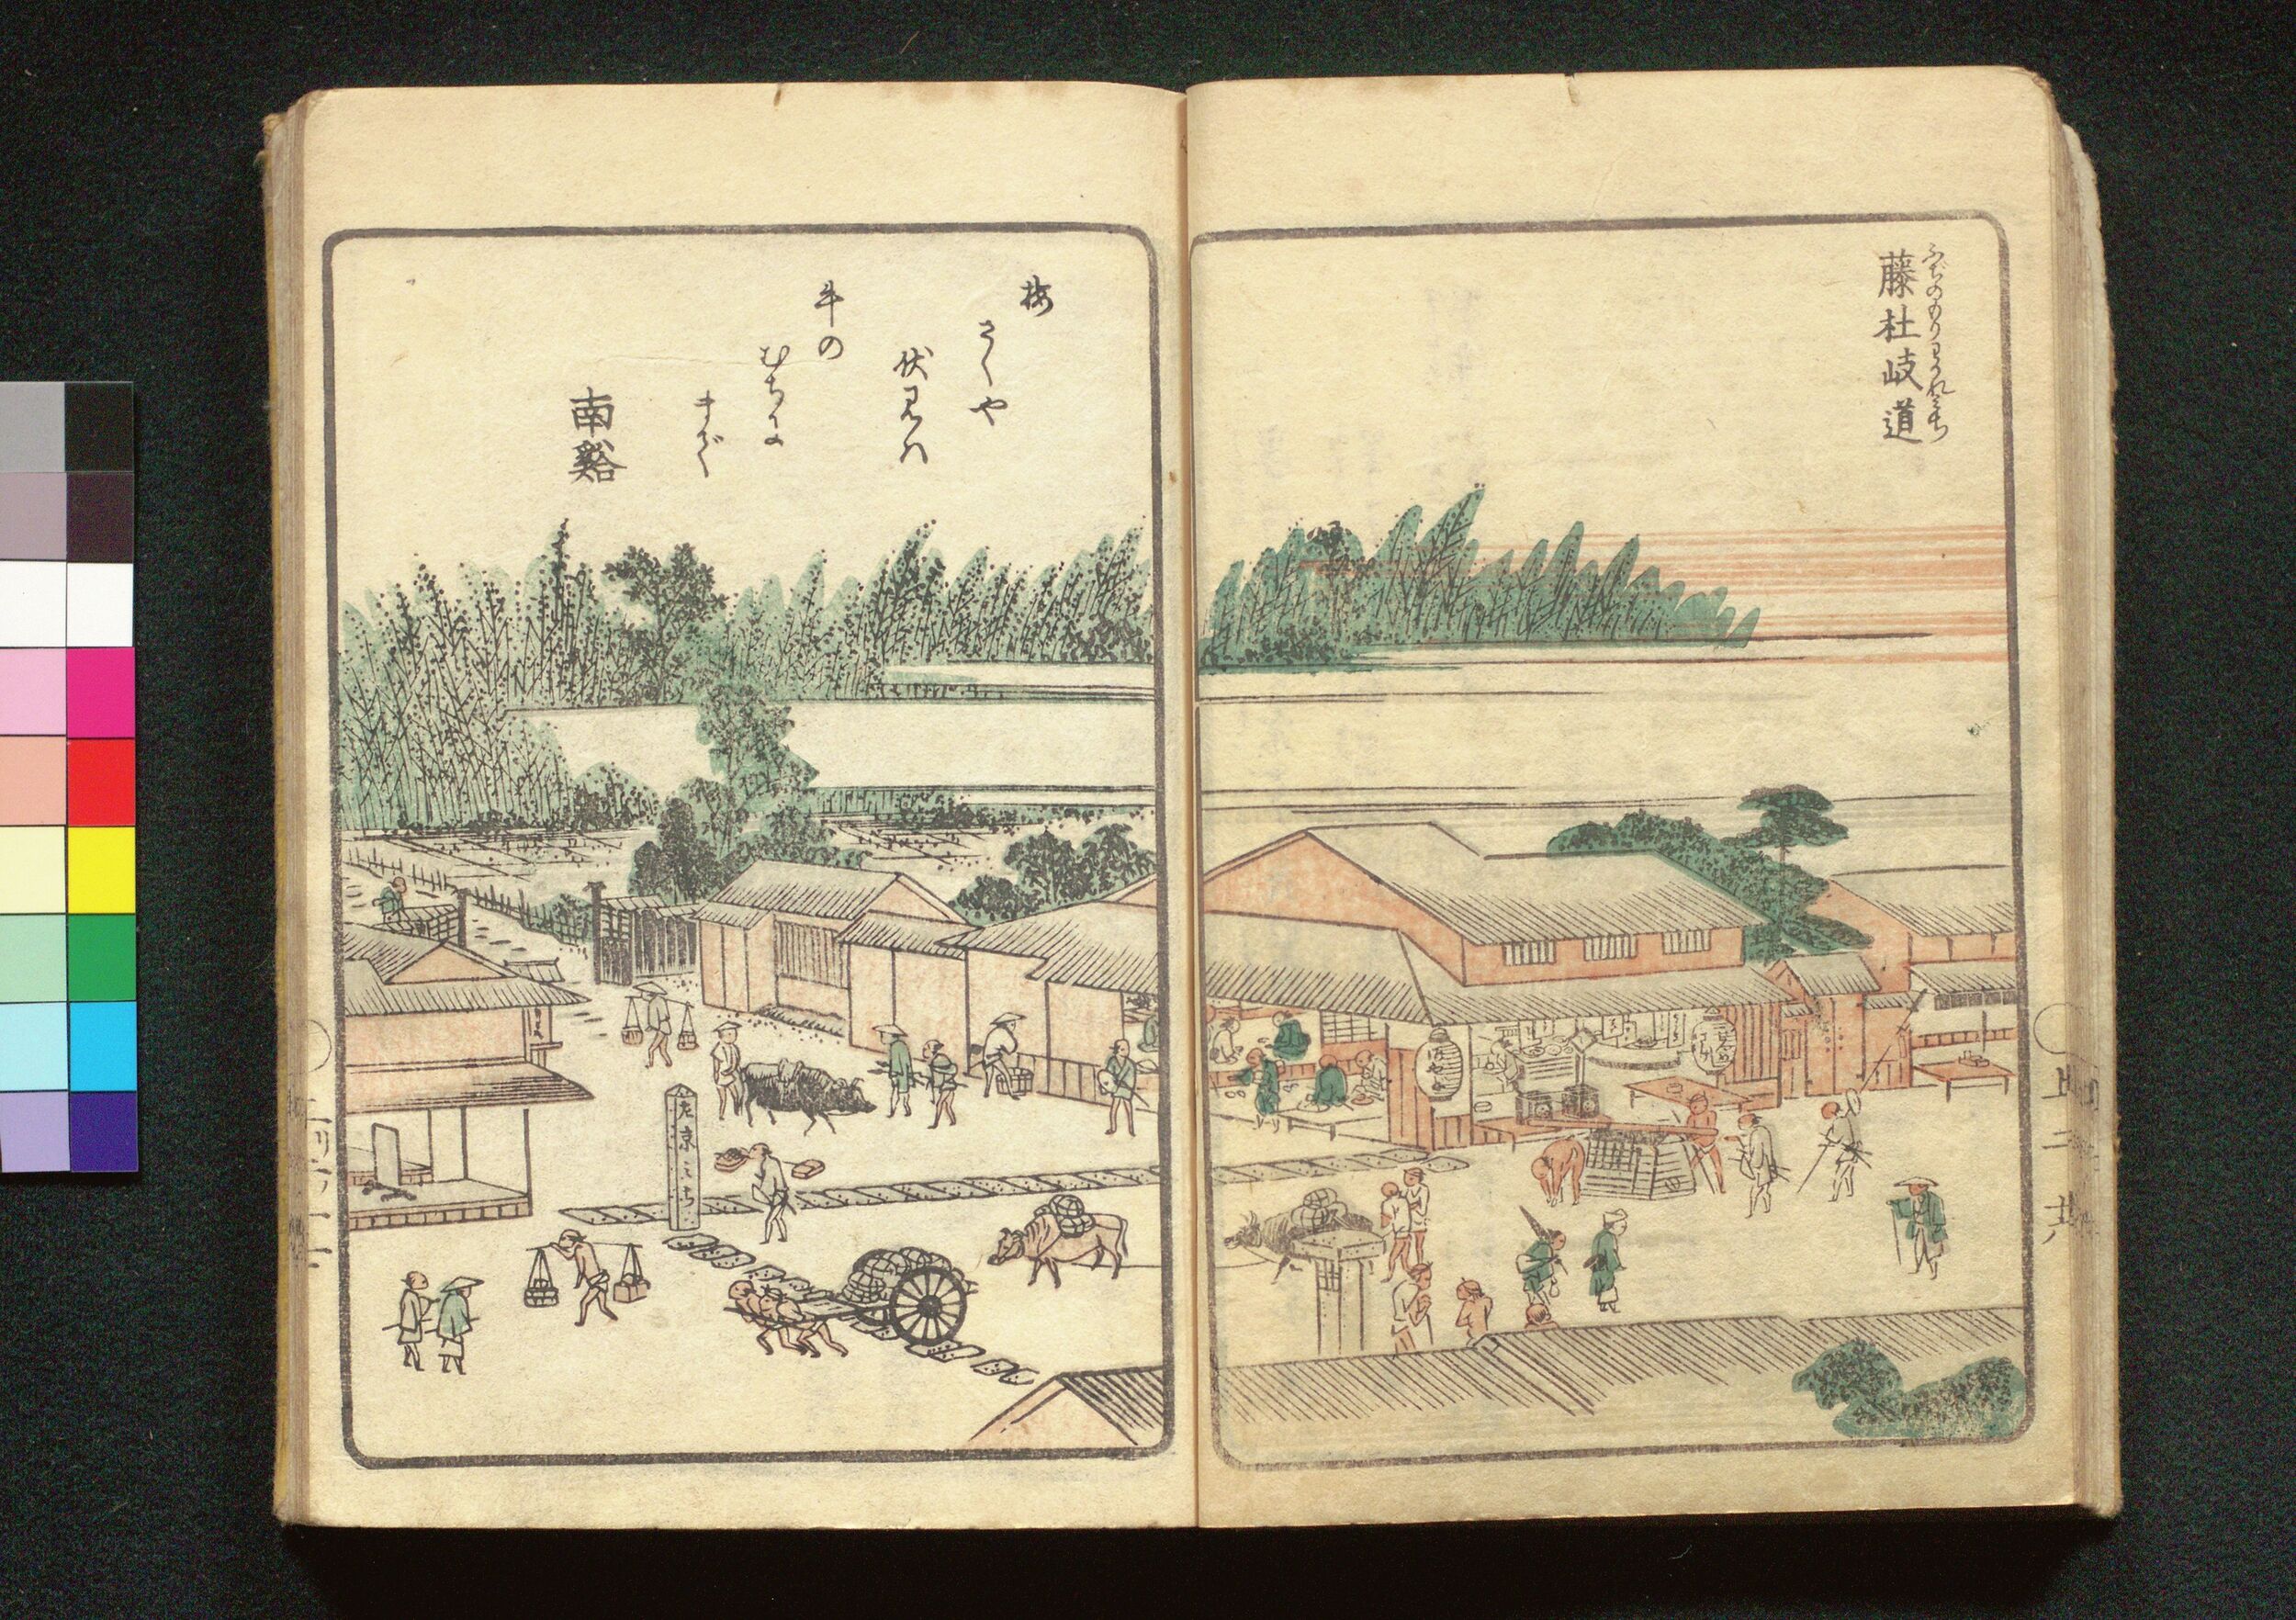 藤杜岐道
ふぢのもりわかれみち
梅
さくや
伏見は
牛の
むちに
まで
南谿
左京みち